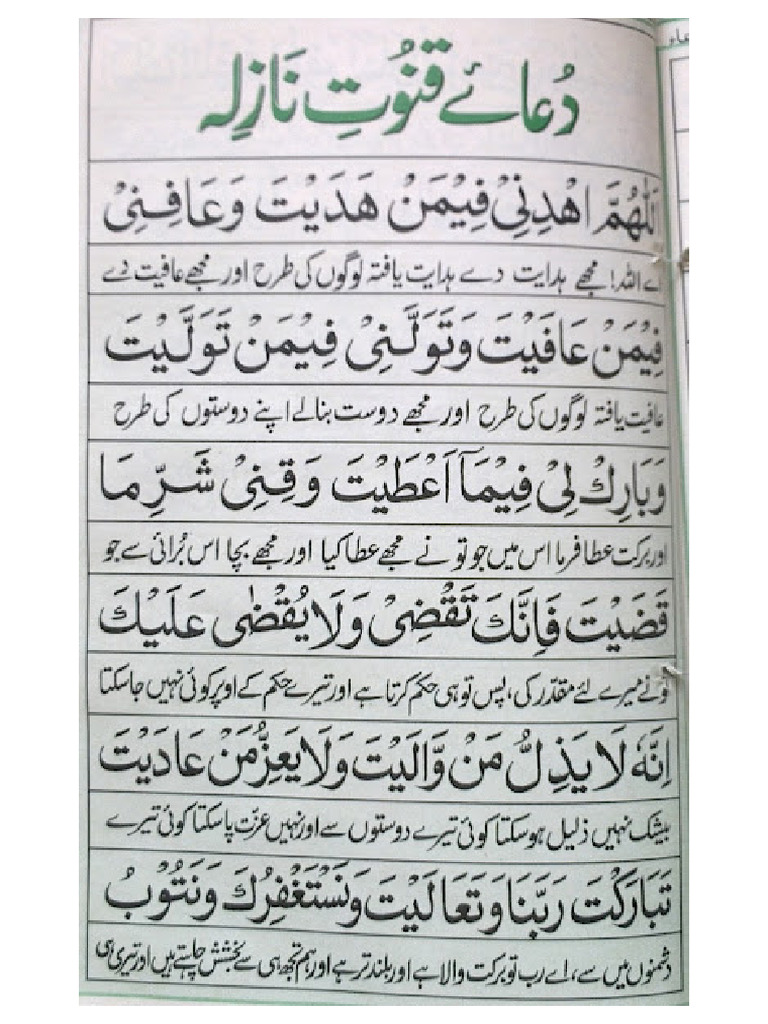 دُعائے قنُوتِ نَازِلہ
اَللّٰهُمَّ اهْدِنِيْ فِيْمَنْ هَدَيْتَ وَعَافِنِيْ
اے اللہ! مجھے ہدایت دے ہدایت یافتہ لوگوں کی طرح اور مجھے عافیت دے
فِيْمَنْ عَافَيْتَ وَتَوَلَّنِيْ فِيْمَنْ تَوَلَّيْتَ
عافیت یافتہ لوگوں کی طرح اور مجھے دوست بنالے اپنے دوستوں کی طرح
وَبَارِكْ لِيْ فِيْمَآ اَعْطَيْتَ وَقِنِيْ شَرَّ مَا
اور برکت عطا فرما اس میں جو تو نے مجھے عطا کیا اور مجھے بچا اس بُرائی سے جو
قَضَيْتَ فَاِنَّكَ تَقْضِيْ وَلَا يُقْضٰى عَلَيْكَ
تونے میرے لئے مقدّر کی، پس تو ہی حکم کرتا ہے اور تیرے حکم کے اوپر کوئی نہیں جاسکتا
اِنَّهٗ لَا يَذِلُّ مَنْ وَّالَيْتَ وَلَا يَعِزُّ مَنْ عَادَيْتَ
بیشک نہیں ذلیل ہوسکتا کوئی تیرے دوستوں سے اور نہیں عزّت پاسکتا کوئی تیرے
تَبَارَكْتَ رَبَّنَا وَتَعَالَيْتَ وَنَسْتَغْفِرُكَ وَنَتُوْبُ
دشمنوں میں سے، اے رب تو برکت والا ہے اور بلند تر ہے اور ہم تجھ ہی سے بخشش چاہتے ہیں اور تیری ہی